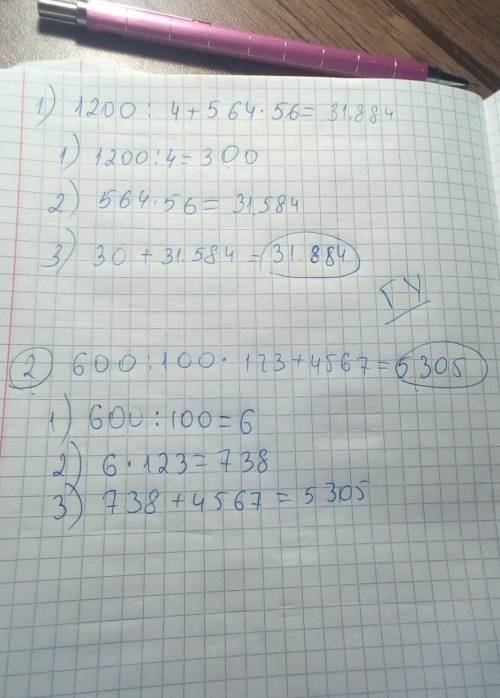 1) 1200 : 4 + 564 · 56 = 31.884
1) 1200 : 4 = 300
2) 564 · 56 = 31.584
3) 30 + 31.584 = 31.884
Г.У
2 600 : 100 · 123 + 4567 = 5305
1) 600 : 100 = 6
2) 6 · 123 = 738
3) 738 + 4567 = 5305